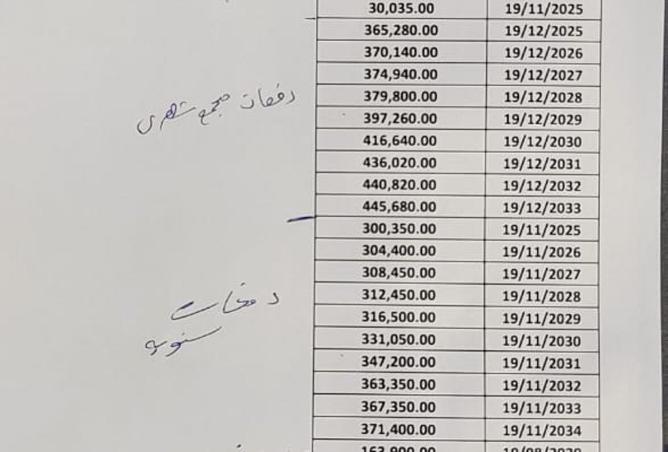 30,035.00 19/11/2025
365,280.00 19/12/2025
370,140.00 19/12/2026
374,940.00 19/12/2027
379,800.00 19/12/2028
دفعات مجمع شهري
397,260.00 19/12/2029
416,640.00 19/12/2030
436,020.00 19/12/2031
440,820.00 19/12/2032
445,680.00 19/12/2033
300,350.00 19/11/2025
304,400.00 19/11/2026
308,450.00 19/11/2027
312,450.00 19/11/2028
دفعات
316,500.00 19/11/2029
سنويه
331,050.00 19/11/2030
347,200.00 19/11/2031
363,350.00 19/11/2032
367,350.00 19/11/2033
371,400.00 19/11/2034